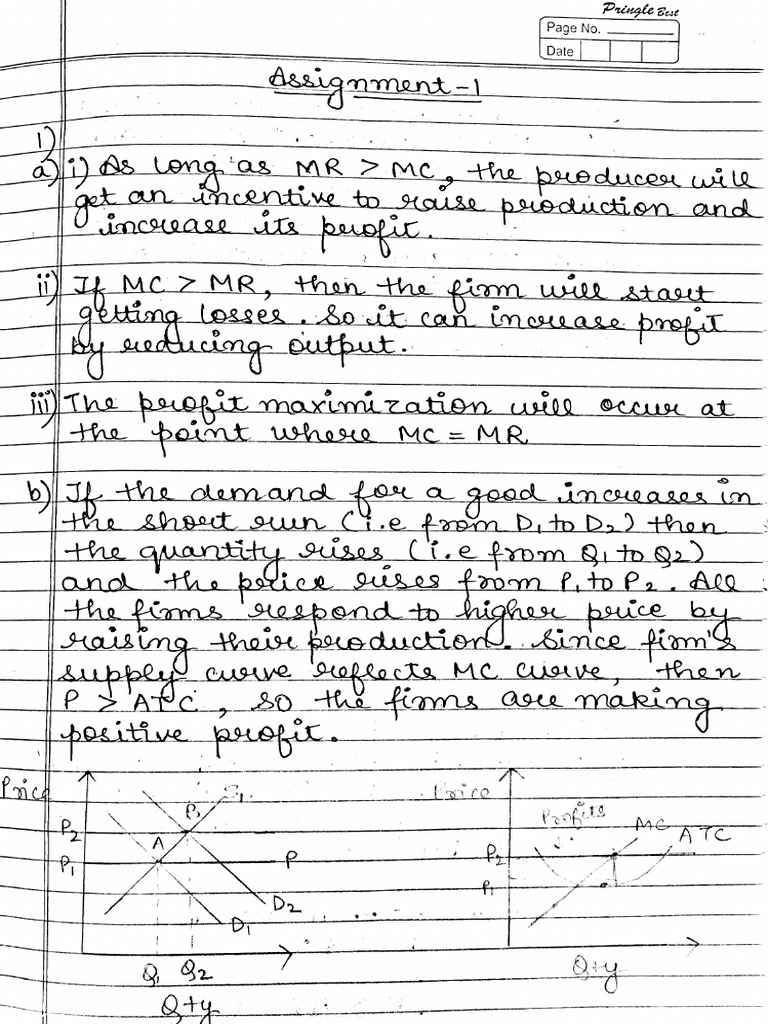 Pringle Best
Page No.
Date
Assignment-1
1)
a) i) As long as MR > MC, the producer will
get an incentive to raise production and
increase its profit.
ii) If MC > MR, then the firm will start
getting losses. So it can increase profit
by reducing output.
iii) The profit maximization will occur at
the point where MC = MR
b) If the demand for a good increases in
the short run (i.e from D1 to D2) then
the quantity rises (i.e from Q1 to Q2)
and the price rises from P1 to P2. All
the firms respond to higher price by
raising their production. Since firm's
supply curve reflects MC curve, then
P > ATC, so the firms are making
positive profit.
Price
P2
P1
A
B
S1
P
D2
D1
Q1 Q2
Qty
Price
Profits
MC
ATC
P2
P1
Qty